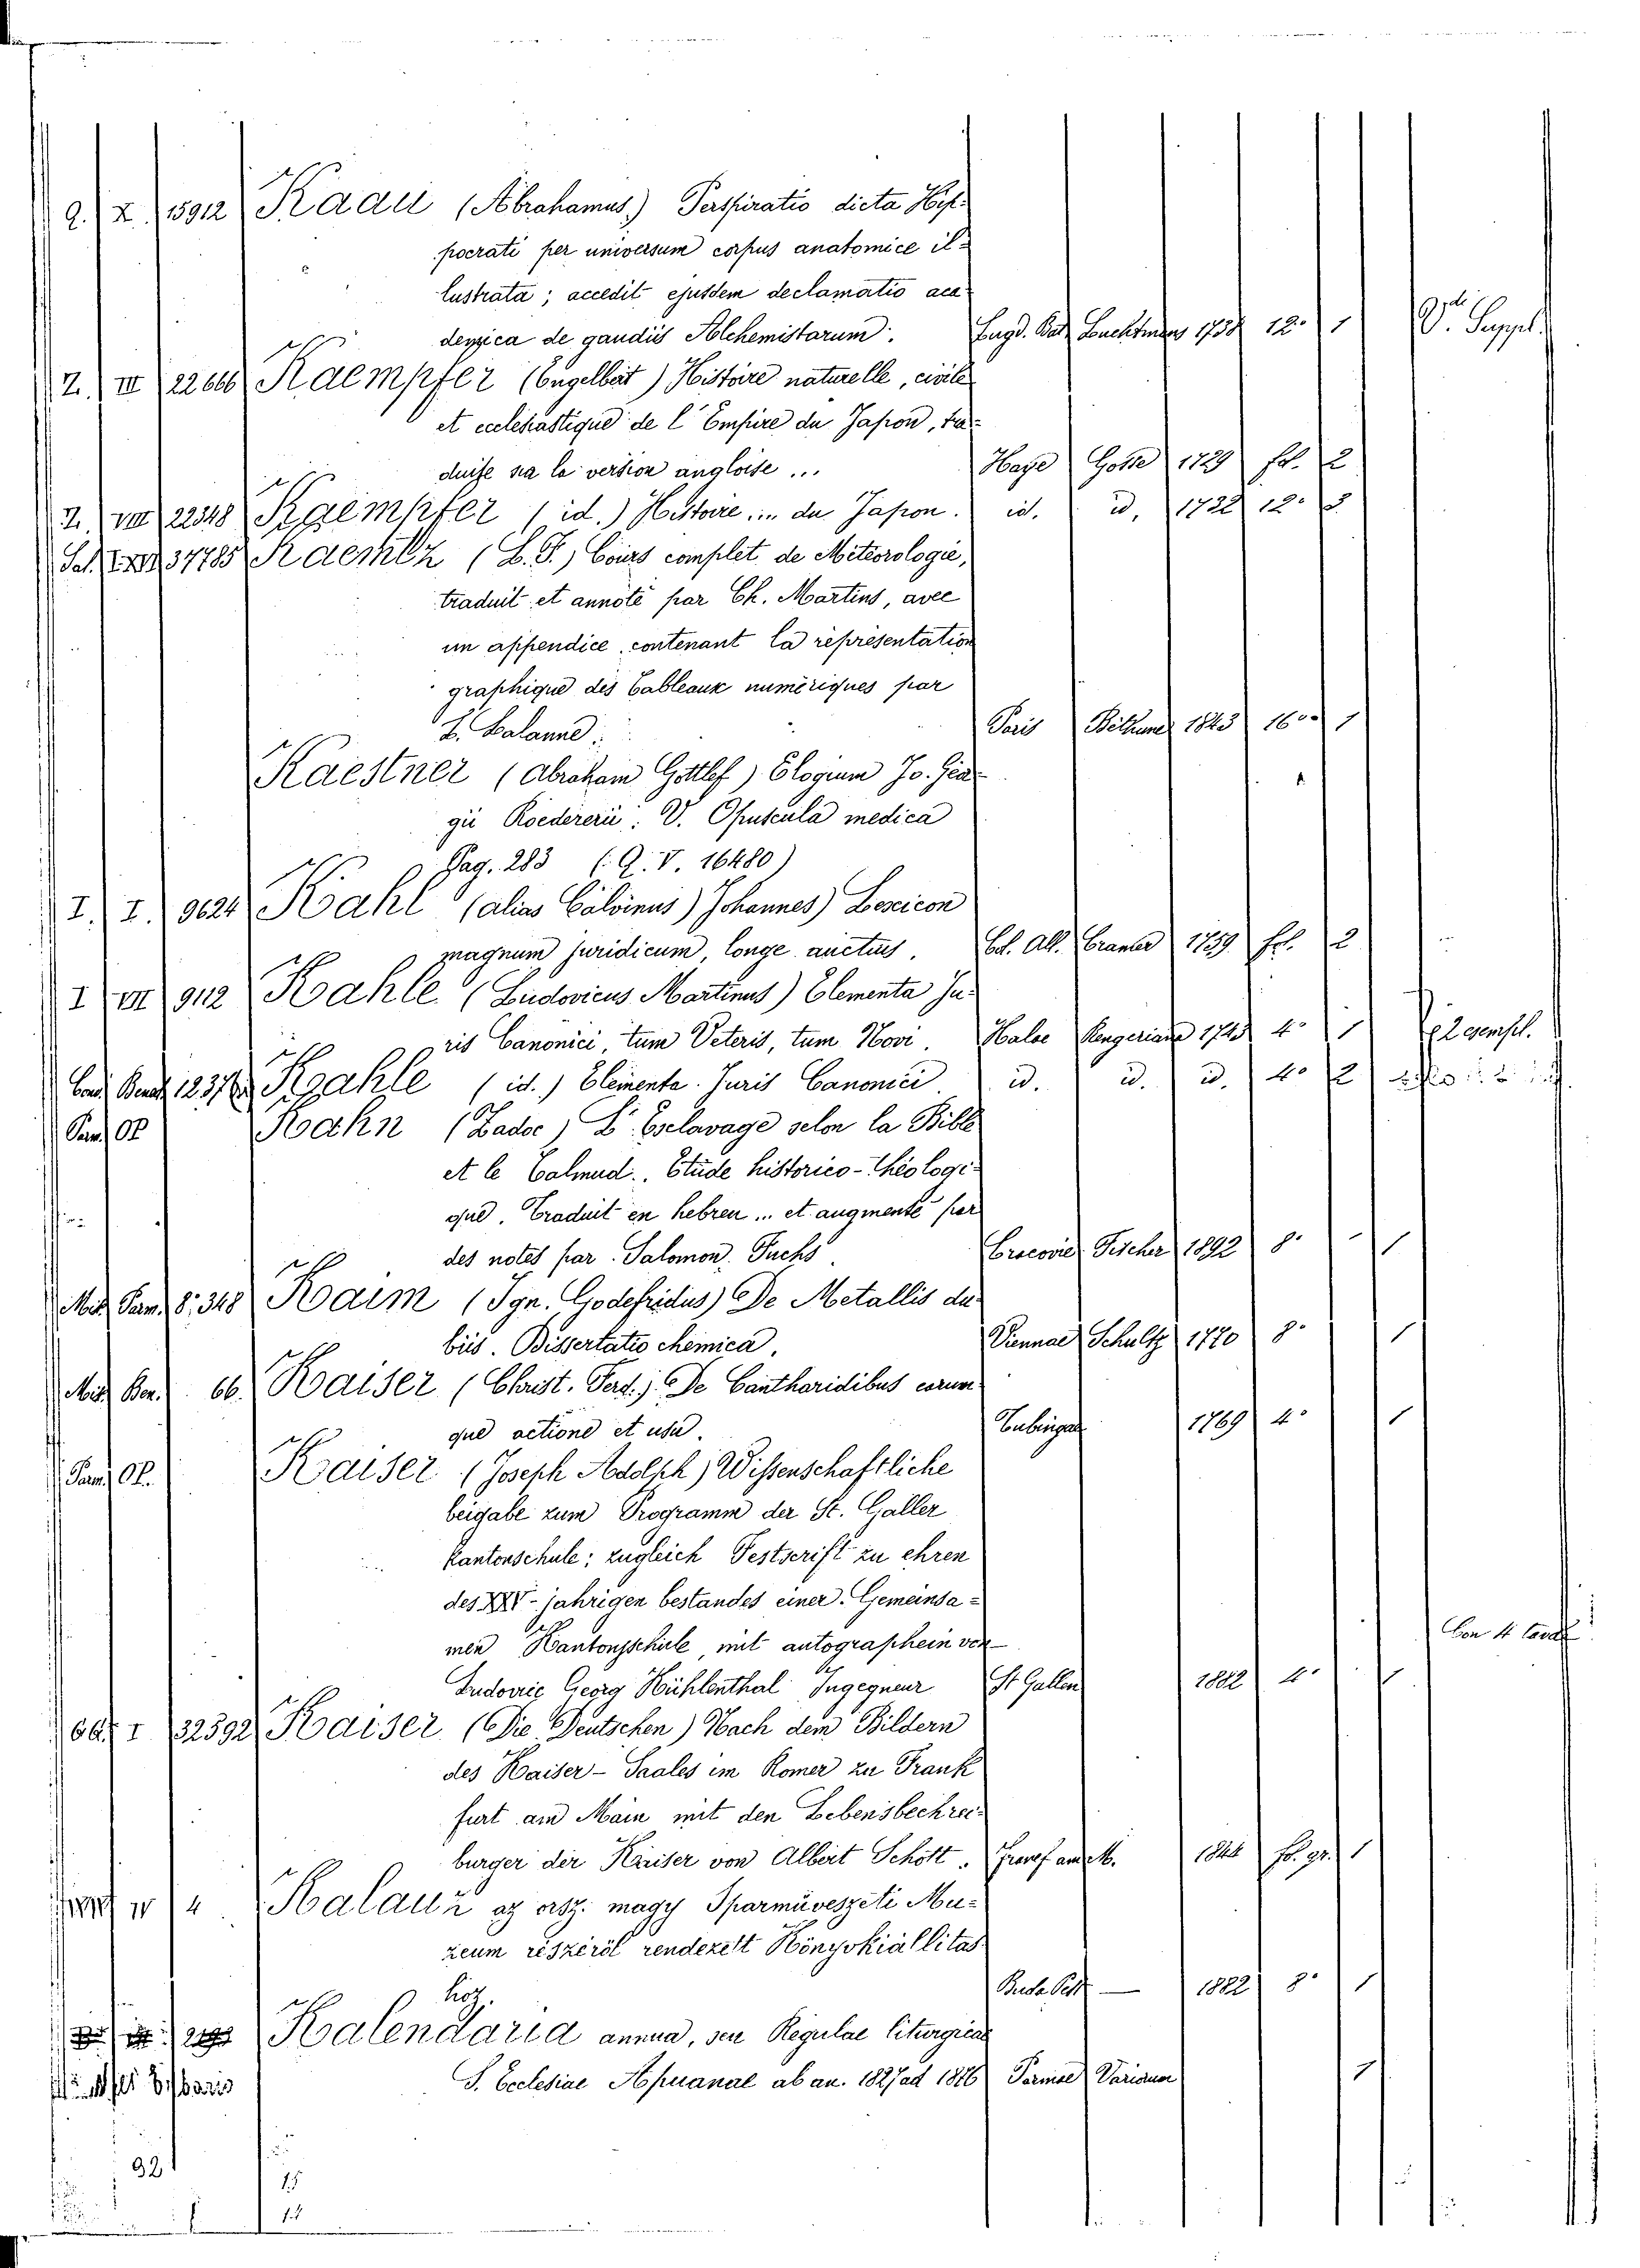 Q. X. 15912 Kaau (Abrahamus) Perspiratio dicta Hip-
pocrati per universum corpus anatomice il-
lustrata; accedit ejusdem declamatio aca-
demica de gaudiis Alchemistarum. Lugd. Bat. Luchtmans 12° 1 V. Suppl.
Z. III 22666 Kaempfer (Engelbert) Histoire naturelle, civile
et ecclesiastique de l'Empire du Japon, tra-
duite sia la version angloise... Haye Gosse 1729 fol. 2
Z. VIII 22348 Kaempfer (id.) Histoire... du Japon. id. id. 1732 12° 3
37785 Kaemtz (L. F.) Cours complet de Météorologie,
traduit et annoté par Ch. Martins, avec
un appendice contenant la représentation
graphique des Tableaux numériques par
L. Lalanne. Paris Béthune 1843 16° 1
Kaestner (Abraham Gottlef) Elogium Jo. Geor-
gii Roedererii: V. Opuscula medica
Pag. 283 (Q. V. 16480)
I. I. 9624 Kahl (alias Calvinus) Johannes) Lexicon
magnum juridicum, longe auctius. Col. All. Cramer 1759 fol. 2
I VII 9112 Kahle (Ludovicus Martinus) Elementa Ju-
ris Canonici, tum Veteris, tum Novi. Halae Rengeriana 1743 4° 1
Kahle (id.) Elementa Juris Canonici id. id. id. 4° 2
Parm. OP Kahn (Zadoc) L'Esclavage selon la Bible
et le Talmud. Etude historico-théologi-
que. Traduit en hebreu... et augmenté par
des notes par Salomon Fuchs. Cracovie Fischer 1892 8° 1
Mis. Parm. 8°. 348 Kaim (Ign. Godefridus) De Metallis du-
biis. Dissertatio chemica. Viennae Schultz 1770 8° 1
Mis. Ber. 66. Kaiser (Christ. Ferd.) De Cantharidibus earum-
que actione et usu. Tubingae 1769 4° 1
Parm. OP. Kaiser (Joseph Adolph) Wissenschaftliche
beigabe zum Programm der St. Galler
Kantonschule; zugleich Festscrift zu ehren
des XXV-jahrigen bestandes einer Gemeinsa-
men Kantonsschule, mit autographein von
Ludovic Georg Kühlenthal Ingegneur St Gallen 1882 4° 1 Con 4 tavole
I 32592 Kaiser (Die Deutschen) Nach dem Bildern
des Kaiser-Saales im Romer zu Frank
furt am Main mit den Lebensbechrei-
burger der Kaiser von Albert Schott. am M. 1844 fol. gr. 1
IV 4 Kalauz az orsz. magy Iparmüveszeti Mu-
zeum részéröl rendezett Könyvkiállitas-
hoz. Buda Pest — 1882 8° 1
Kalendaria annua, seu Regulae liturgicae
S. Ecclesiae Apuanae ab an. 1827 ad 1876 Parmae Variorum 1
32
15